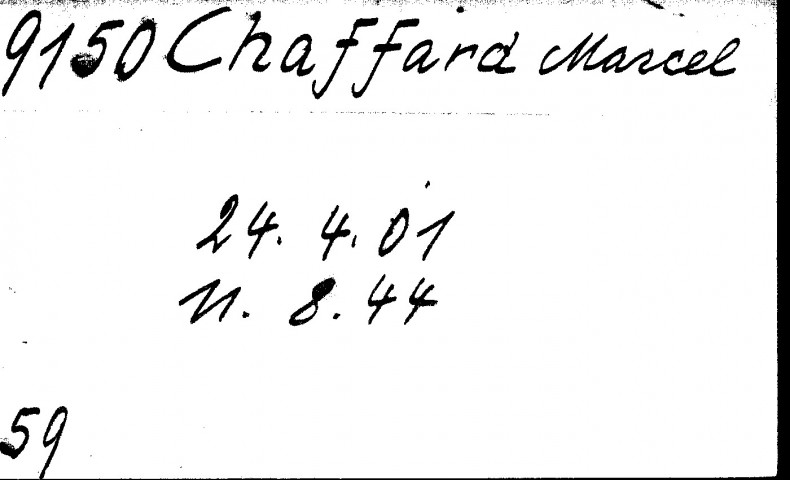 9150 Chaffard Marcel
24. 4. 01
11. 8. 44
59